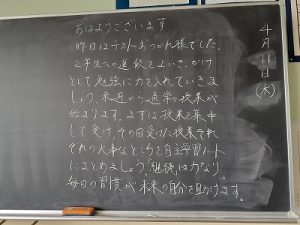 おはようございます
昨日はテストおつかれ様でした。
2年生への進級をよいきっかけ
として勉強に力を入れていきま
しょう。来週から通常の授業が
始まります。まずは授業に集中
して受け、その日受けた授業それ
ぞれの大事なところを自主学習ノート
にまとめましょう。継続は力なり。
毎日の習慣が未来の自分を助けます。
4月11日(木)